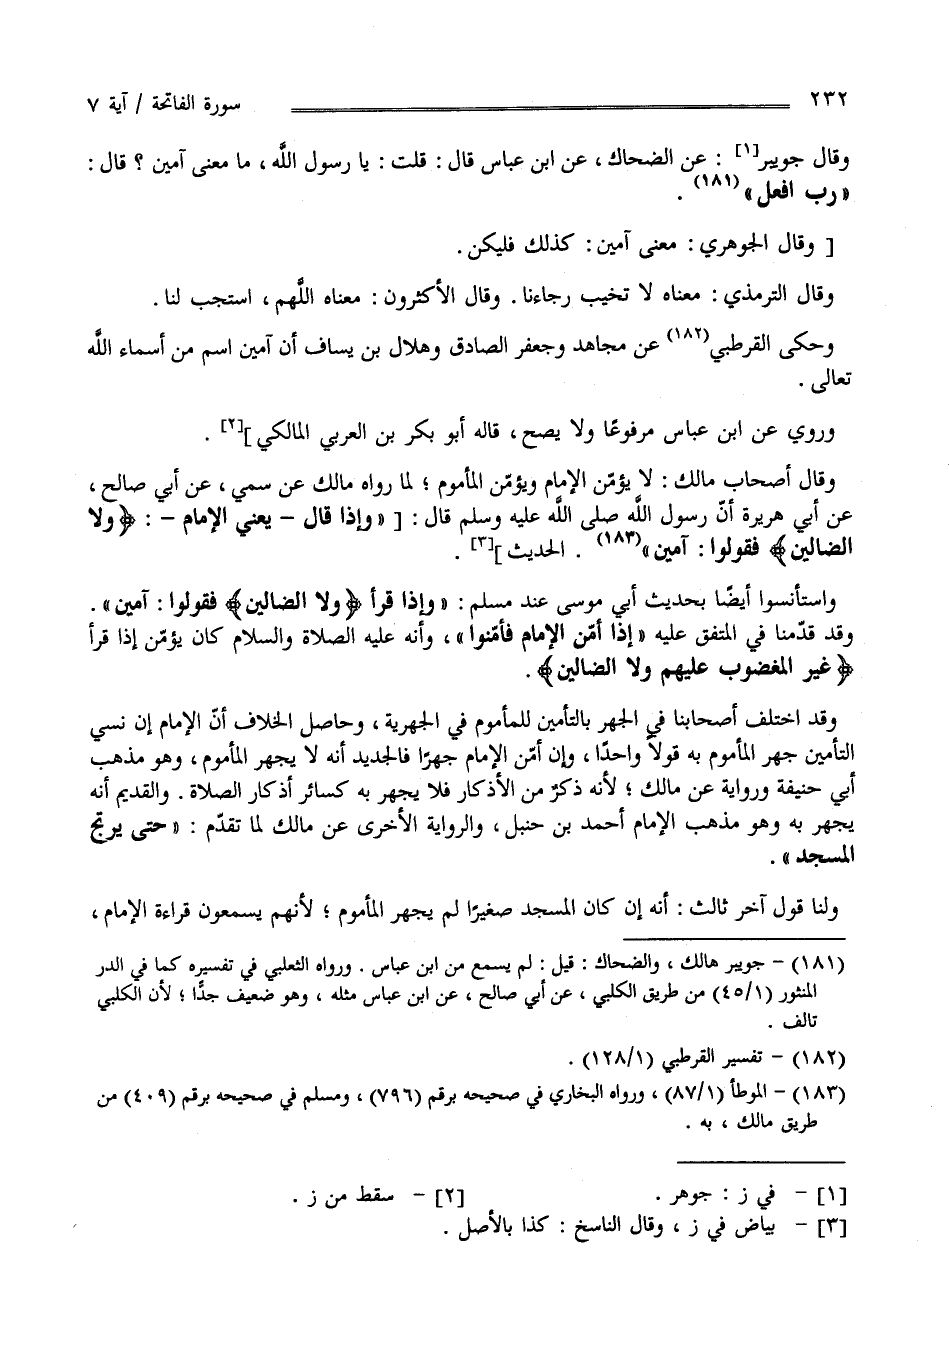 ٢٣٢ سورة الفاتحة / آية ٧
وقال جويبر[١] : عن الضحاك ، عن ابن عباس قال : قلت : يا رسول اللَّه ، ما معنى آمين ؟ قال :
« رب افعل »(١٨١) .
[ وقال الجوهري : معنى آمين : كذلك فليكن .
وقال الترمذي : معناه لا تخيب رجاءنا . وقال الأكثرون : معناه اللَّهم ، استجب لنا .
وحكى القرطبي(١٨٢) عن مجاهد وجعفر الصادق وهلال بن يساف أن آمين اسم من أسماء اللَّه
تعالى .
وروي عن ابن عباس مرفوعًا ولا يصح ، قاله أبو بكر بن العربي المالكي ][٢] .
وقال أصحاب مالك : لا يؤمّن الإمام ويؤمّن المأموم ؛ لما رواه مالك عن سمي ، عن أبي صالح ،
عن أبي هريرة أنّ رسول اللَّه صلى اللَّه عليه وسلم قال : [ « وإذا قال – يعني الإمام – : ﴿ ولا
الضالين ﴾ فقولوا : آمين »(١٨٣) . الحديث ][٣] .
واستأنسوا أيضًا بحديث أبي موسى عند مسلم : « وإذا قرأ ﴿ ولا الضالين ﴾ فقولوا : آمين » .
وقد قدّمنا في المتفق عليه « إذا أمّن الإمام فأمّنوا » ، وأنه عليه الصلاة والسلام كان يؤمّن إذا قرأ
﴿ غير المغضوب عليهم ولا الضالين ﴾ .
وقد اختلف أصحابنا في الجهر بالتأمين للمأموم في الجهرية ، وحاصل الخلاف أنّ الإمام إن نسي
التأمين جهر المأموم به قولاً واحدًا ، وإن أمّن الإمام جهرًا فالجديد أنه لا يجهر المأموم ، وهو مذهب
أبي حنيفة ورواية عن مالك ؛ لأنه ذكرٌ من الأذكار فلا يجهر به كسائر أذكار الصلاة . والقديم أنه
يجهر به وهو مذهب الإمام أحمد بن حنبل ، والرواية الأخرى عن مالك لما تقدّم : « حتى يرتج
المسجد » .
ولنا قول آخر ثالث : أنه إن كان المسجد صغيرًا لم يجهر المأموم ؛ لأنهم يسمعون قراءة الإمام ،
(١٨١) – جويبر هالك ، والضحاك : قيل : لم يسمع من ابن عباس . ورواه الثعلبي في تفسيره كما في الدر
المنثور (٤٥/١) من طريق الكلبي ، عن أبي صالح ، عن ابن عباس مثله ، وهو ضعيف جدًّا ؛ لأن الكلبي
تالف .
(١٨٢) – تفسير القرطبي (١٢٨/١) .
(١٨٣) – الموطأ (٨٧/١) ، ورواه البخاري في صحيحه برقم (٧٩٦) ، ومسلم في صحيحه برقم (٤٠٩) من
طريق مالك ، به .
[١] – في ز : جوهر . [٢] – سقط من ز .
[٣] – بياض في ز ، وقال الناسخ : كذا بالأصل .